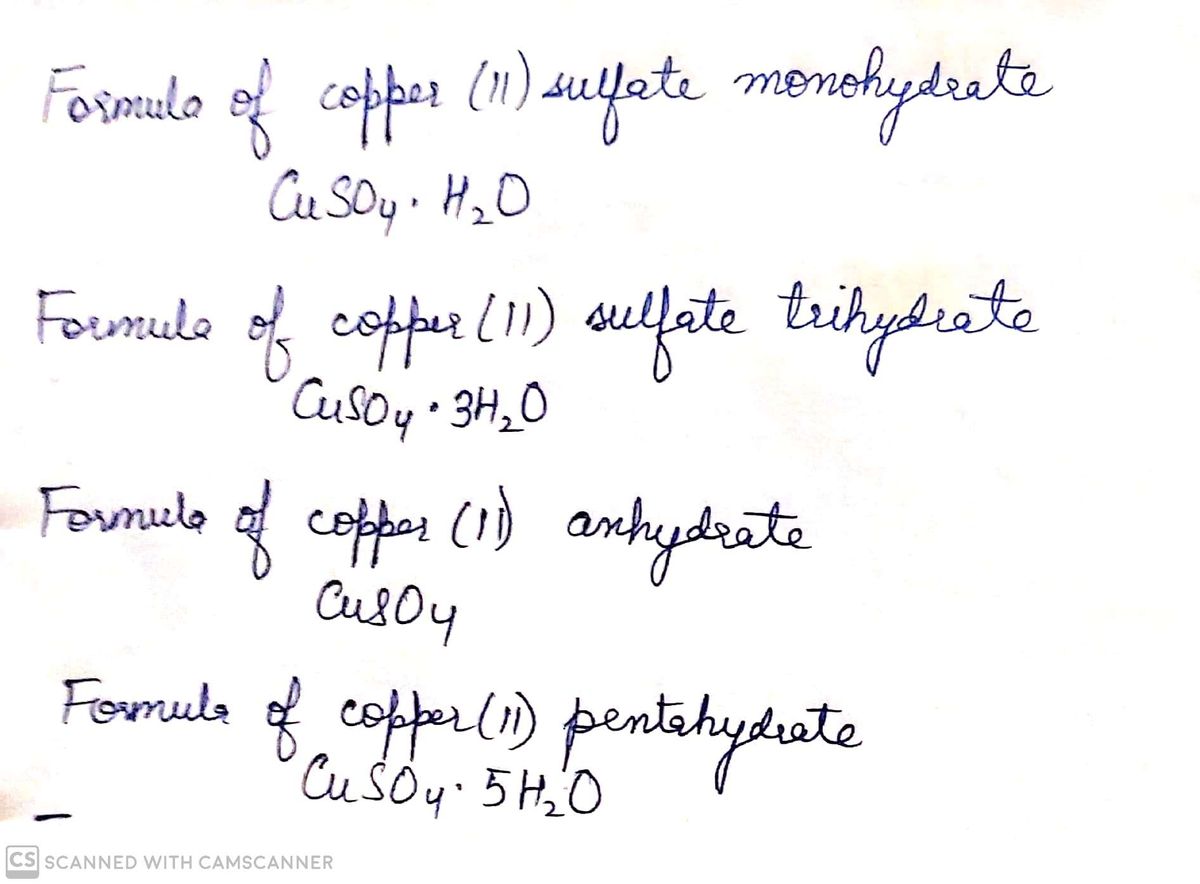 Formula of copper (11) sulfate monohydrate
CuSO₄· H₂O
Formula of copper (11) sulfate trihydrate
CuSO₄ · 3H₂O
Formula of copper (11) anhydrate
CuSO₄
Formula of copper (11) pentahydrate
CuSO₄· 5H₂O
CS SCANNED WITH CAMSCANNER